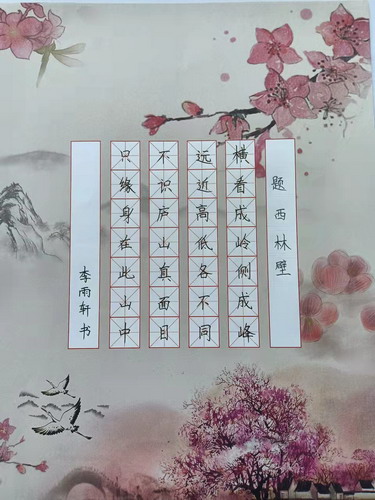 题西林壁
横看成岭侧成峰
远近高低各不同
不识庐山真面目
只缘身在此山中
李雨轩书